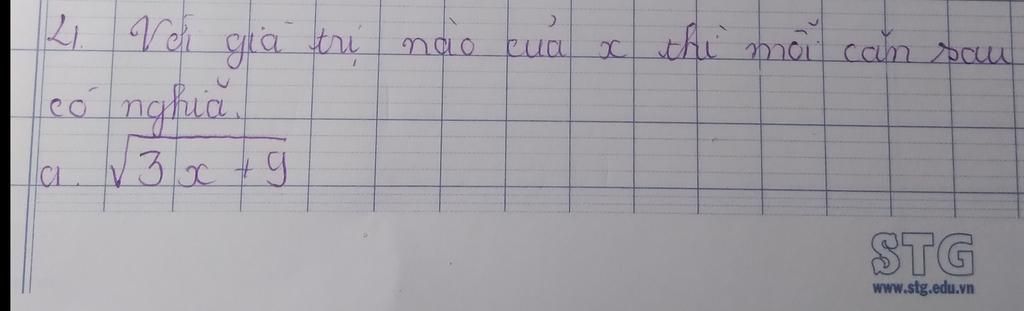 4. Với giá trị nào của x thì mỗi căn sau
có nghĩa.
a. √3x + 9
STG
www.stg.edu.vn